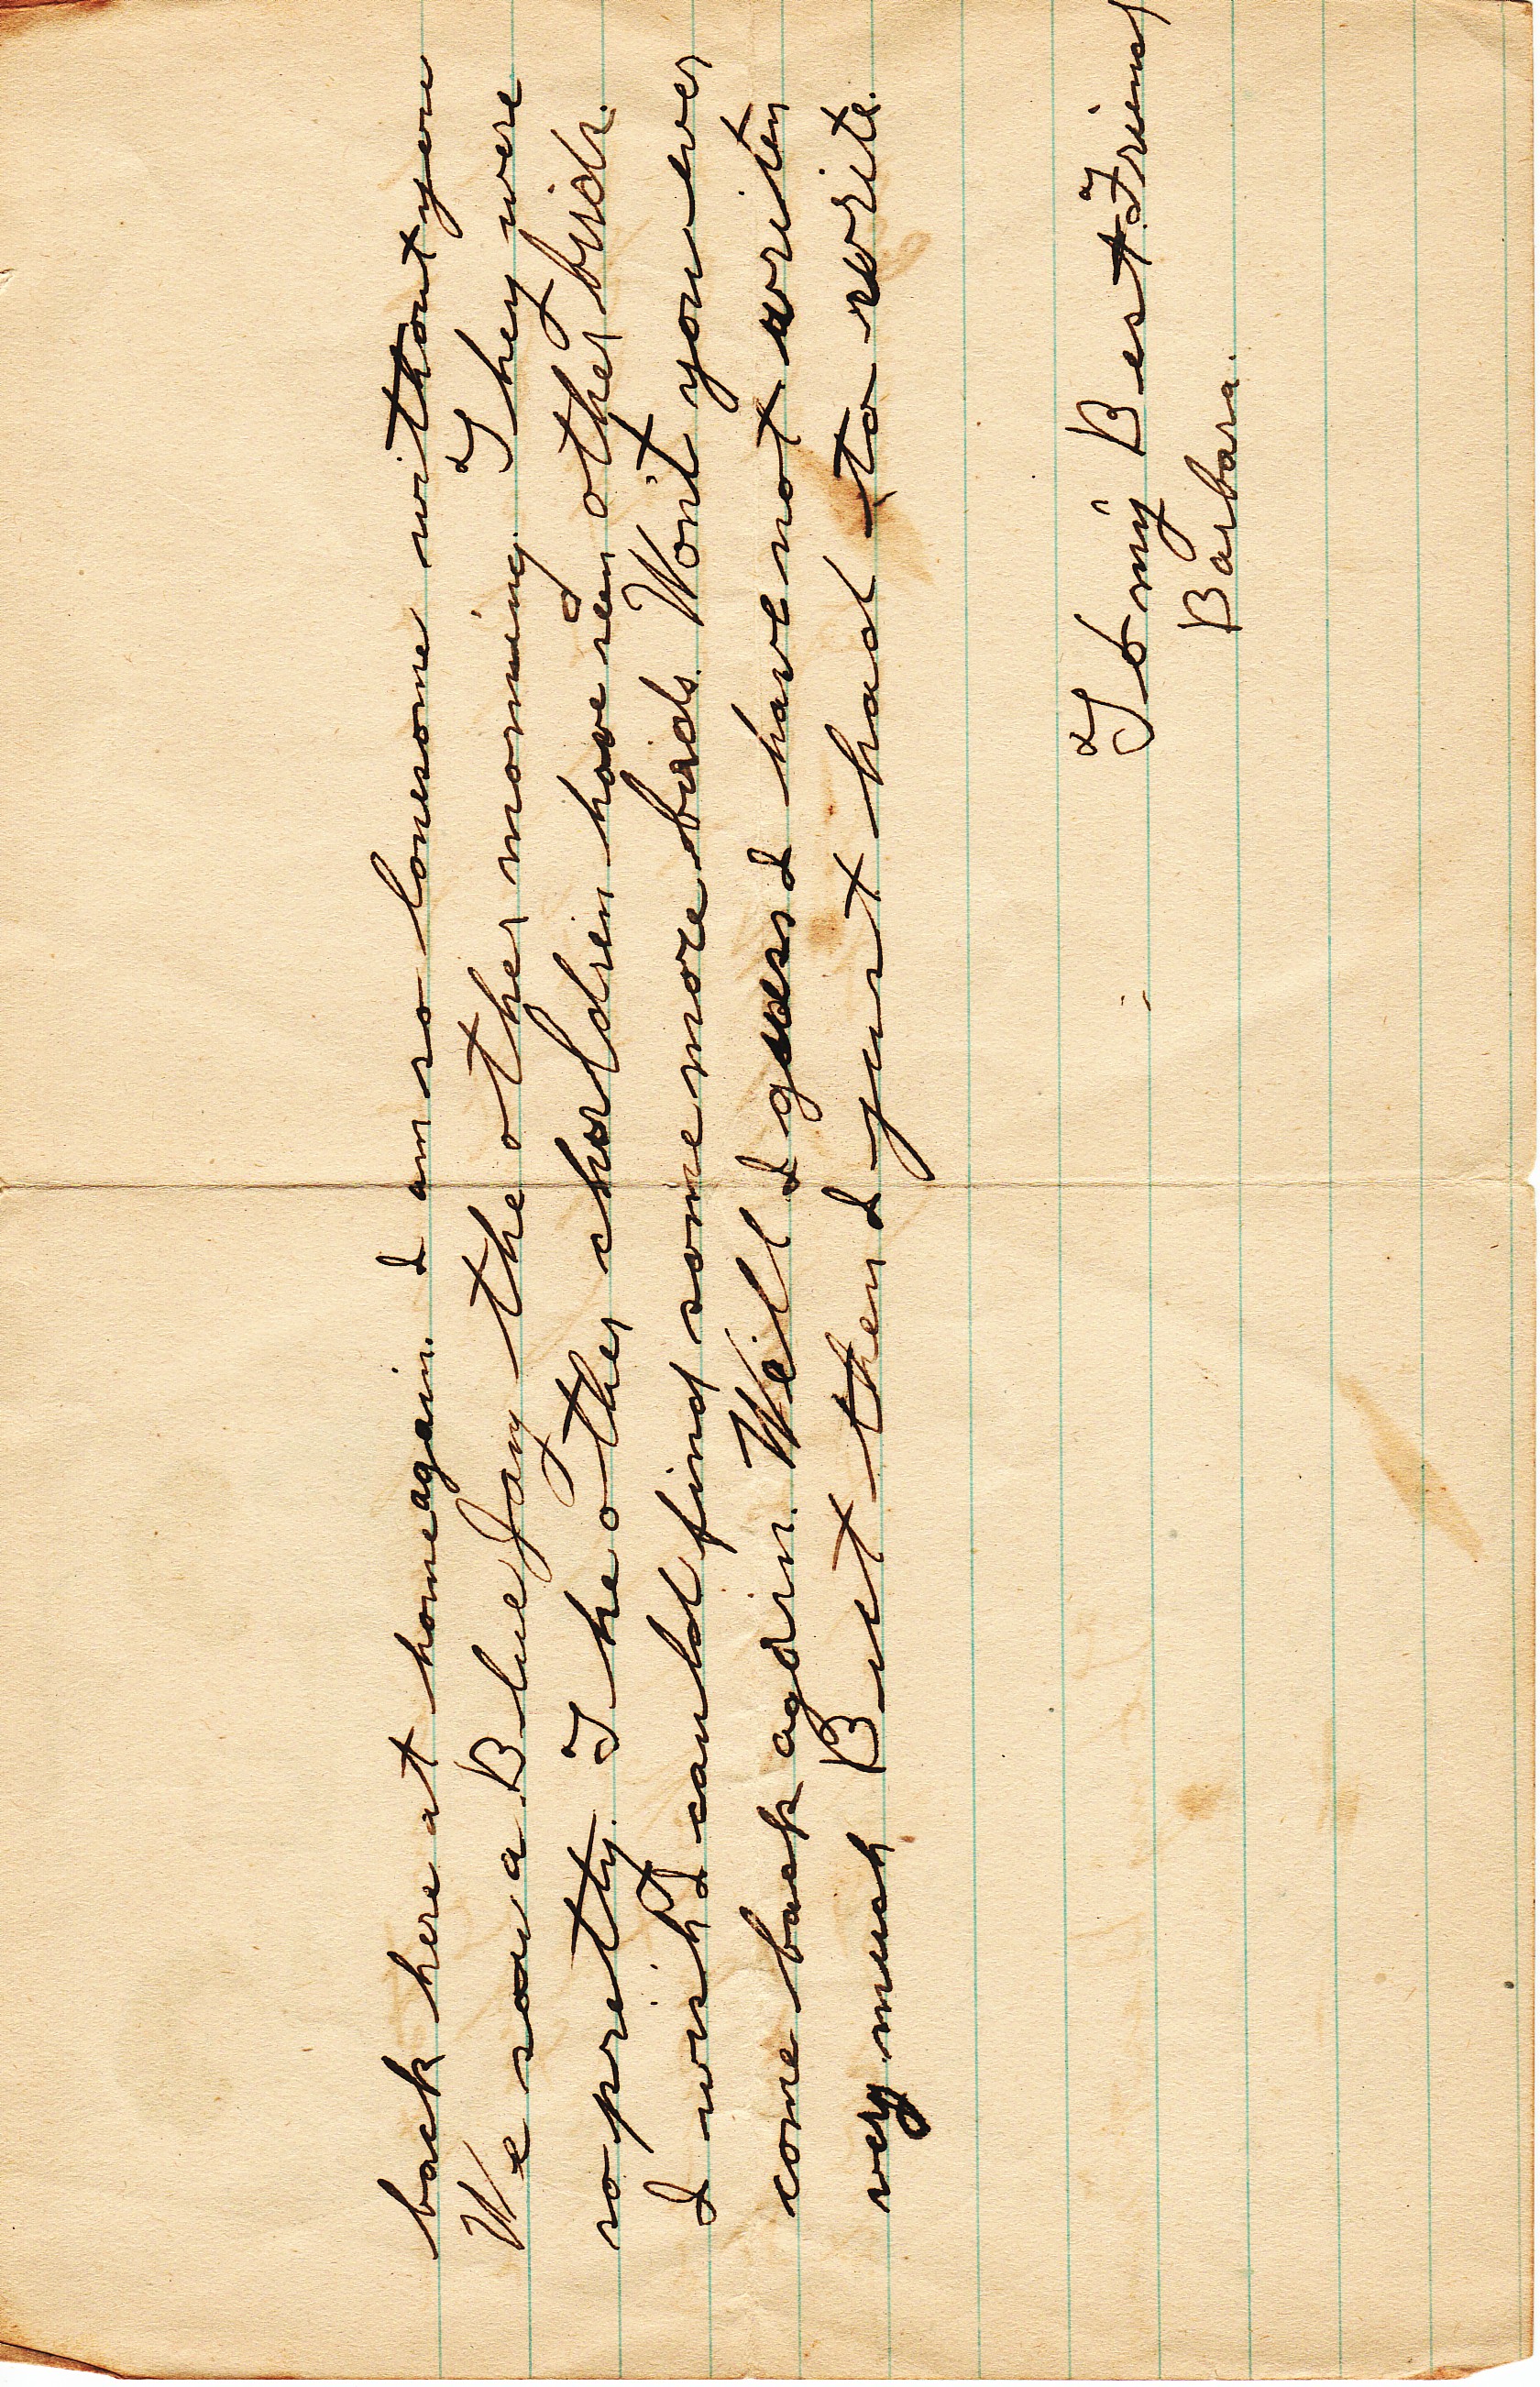 back here at home again. I am so lonesome without you
We saw a Blue Jay the other morning. They were
so pretty. The other children have seen other birds.
I wish I could find some more birds. Won't you ever
come back again. Well I guess I have not writen
very much But then I just had to write.
To my Best Friend
Barbara.